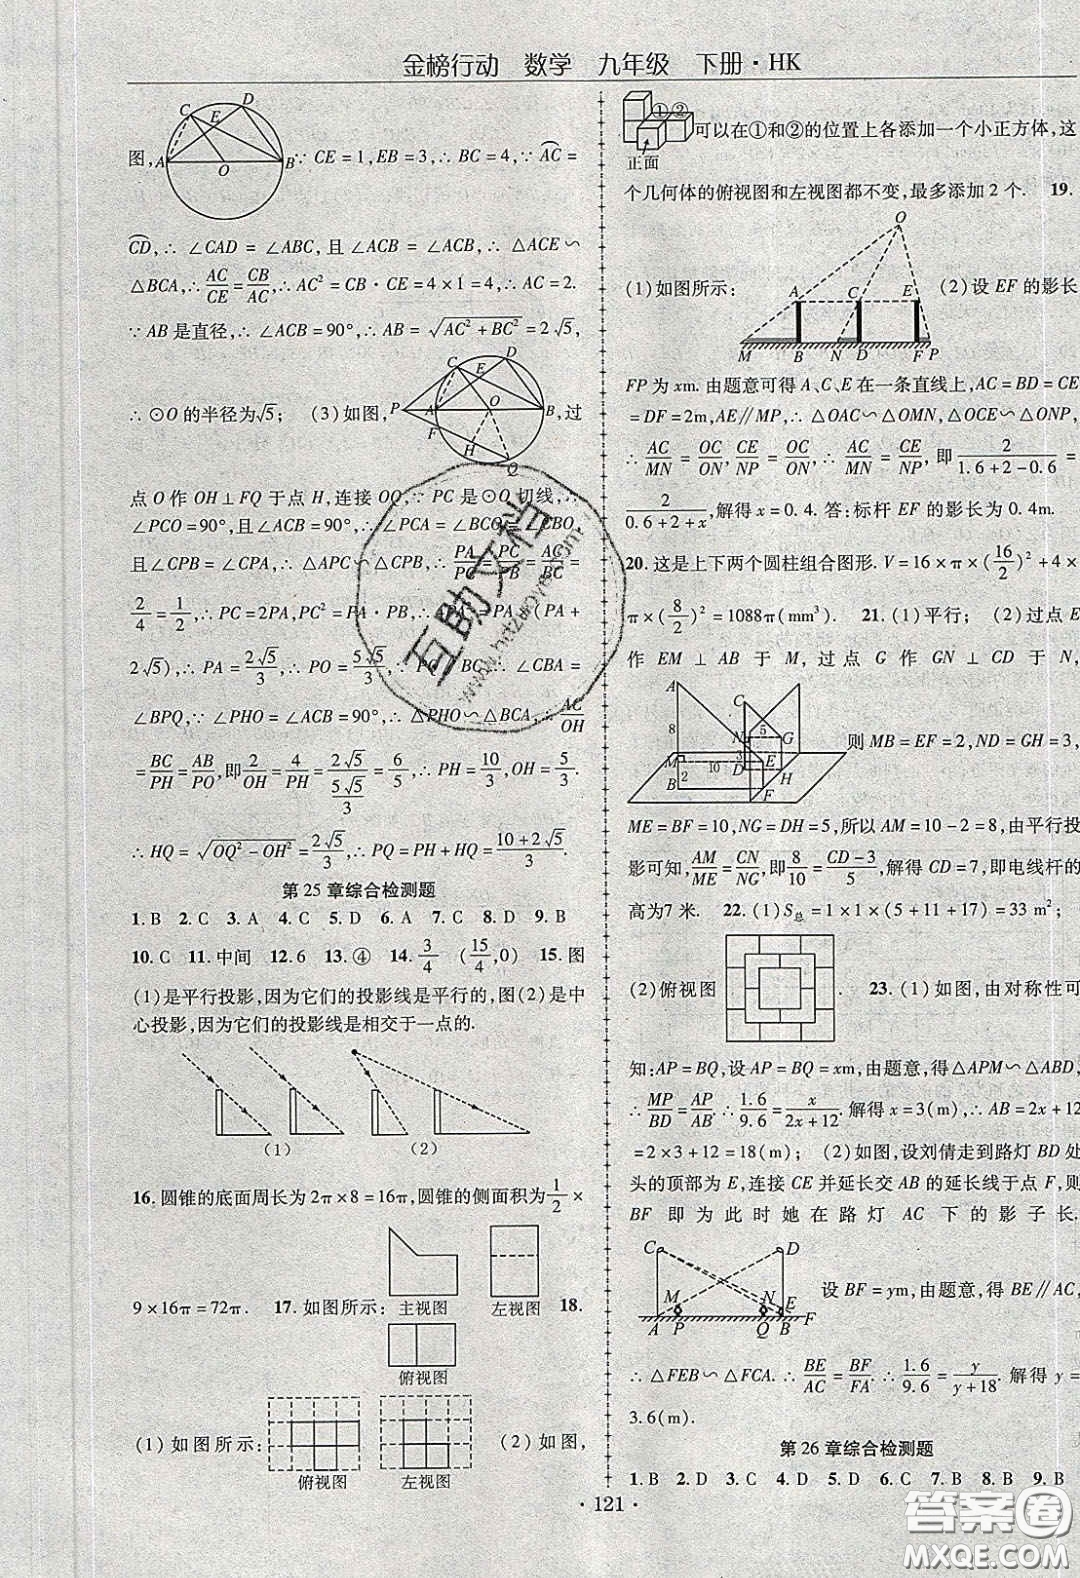 金榜行动 数学 九年级 下册·HK
图, ∵ CE = 1, EB = 3, ∴ BC = 4, ∵ AC =
C E D A O B
CD, ∴ ∠CAD = ∠ABC, 且∠ACB = ∠ACB, ∴ △ACE∽
△BCA, ∴ AC/CE = CB/AC, ∴ AC² = CB·CE = 4×1 = 4, ∴ AC = 2.
∵ AB 是直径, ∴ ∠ACB = 90°, ∴ AB = √(AC² + BC²) = 2√5,
∴ ⊙O 的半径为√5; (3)如图, 过
P C E D A O B F H Q
点 O 作 OH⊥FQ 于点 H, 连接 OQ, ∵ PC 是⊙O 切线, ∴
∠PCO = 90°, 且∠ACB = 90°, ∴ ∠PCA = ∠BCO = ∠CBO,
且∠CPB = ∠CPA, ∴ △APC∽△CPB, ∴ PA/PC = PC/PB = AC/BC =
2/4 = 1/2, ∴ PC = 2PA, PC² = PA·PB, ∴ 4PA² = PA×(PA +
2√5), ∴ PA = 2√5/3, ∴ PO = 5√5/3, ∵ PQ∥BC, ∴ ∠CBA =
∠BPQ, ∵ ∠PHO = ∠ACB = 90°, ∴ △PHO∽△BCA, ∴ AC/OH
= BC/PH = AB/PO, 即 2/OH = 4/PH = 2√5/(5√5/3) = 6/5, ∴ PH = 10/3, OH = 5/3,
∴ HQ = √(OQ² − OH²) = 2√5/3, ∴ PQ = PH + HQ = (10 + 2√5)/3.
第 25 章综合检测题
1. B 2. C 3. A 4. C 5. C 6. A 7. C 8. D 9. B
10. C 11. 中间 12. 6 13. ④ 14. 3/4 (15/4, 0) 15. 图
(1)是平行投影, 因为它们的投影线是平行的, 图(2)是中
心投影, 因为它们的投影线是相交于一点的.
(1) (2)
16. 圆锥的底面周长为 2π×8 = 16π, 圆锥的侧面积为 1/2 ×
9×16π = 72π. 17. 如图所示: 主视图 左视图 18.
俯视图
(1)如图所示: 俯视图 左视图 (2)如图,
①② 正面 可以在①和②的位置上各添加一个小正方体, 这
个几何体的俯视图和左视图都不变, 最多添加 2 个. 19.
(1)如图所示: (2)设 EF 的影长
O A C E M B N D F P
FP 为 xm. 由题意可得 A、C、E 在一条直线上, AC = BD = CE
= DF = 2m, AE∥MP, ∴ △OAC∽△OMN, △OCE∽△ONP,
∴ AC/MN = OC/ON, CE/NP = OC/ON, ∴ AC/MN = CE/NP, 即 2/(1.6 + 2 − 0.6) =
2/(0.6 + 2 + x), 解得 x = 0.4. 答: 标杆 EF 的影长为 0.4m.
20. 这是上下两个圆柱组合图形. V = 16×π×(16/2)² + 4×
π×(8/2)² = 1088π(mm³). 21. (1)平行; (2)过点 E
作 EM⊥AB 于 M, 过点 G 作 GN⊥CD 于 N,
A C 8 N 5 G M 3 E H 10 D 2 B F
则 MB = EF = 2, ND = GH = 3,
ME = BF = 10, NG = DH = 5, 所以 AM = 10 − 2 = 8, 由平行投
影可知, AM/ME = CN/NG, 即 8/10 = (CD − 3)/5, 解得 CD = 7, 即电线杆的
高为 7 米. 22. (1) S总 = 1×1×(5 + 11 + 17) = 33 m²;
(2)俯视图 . 23. (1)如图, 由对称性可
知: AP = BQ, 设 AP = BQ = xm, 由题意, 得△APM∽△ABD,
∴ MP/BD = AP/AB. ∴ 1.6/9.6 = x/(2x + 12). 解得 x = 3(m), ∴ AB = 2x + 12
= 2×3 + 12 = 18(m); (2)如图, 设刘倩走到路灯 BD 处
头的顶部为 E, 连接 CE 并延长交 AB 的延长线于点 F, 则
BF 即为此时她在路灯 AC 下的影子长.
C D M N E A P Q B F
设 BF = ym, 由题意, 得 BE∥AC,
∴ △FEB∽△FCA. ∴ BE/AC = BF/FA. ∴ 1.6/9.6 = y/(y + 18). 解得 y =
3.6(m).
第 26 章综合检测题
1. B 2. D 3. A 4. C 5. B 6. B 7. D 8. B 9. B
· 121 ·
互助文档
答案圈
MXQE.COM